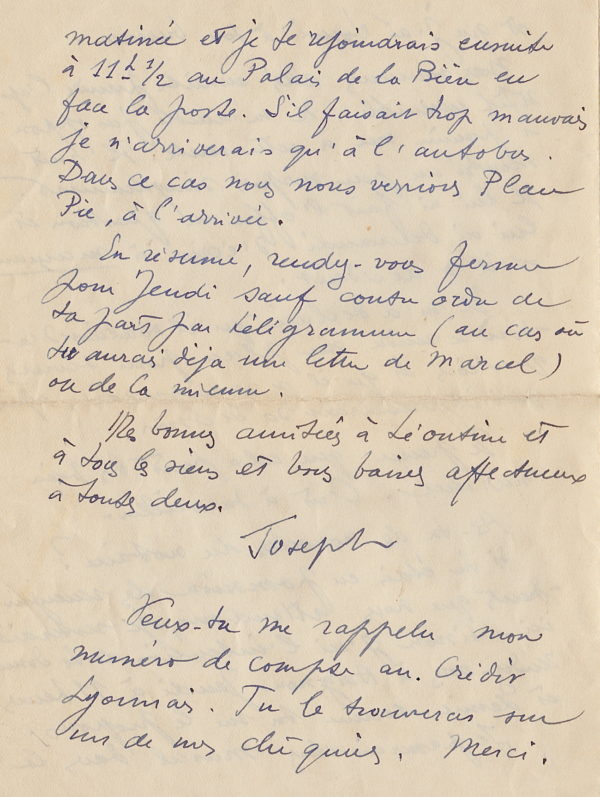 matinée et je te rejoindrais ensuite
à 11h 1/2 au Palais de la Bière en
face la poste. S'il faisait trop mauvais
je n'arriverais qu'à l'autobus.
Dans ce cas nous nous verrions Place
Pie, à l'arrivée.
En résumé, rendez-vous ferme
pour Jeudi sauf contre ordre de
ta part par télégramme (au cas où
tu aurais déja une lettre de Marcel)
ou de la mienne.
Mes bonnes amitiés à Léontine et
à tous les siens et bons baisers affectueux
à toutes deux.
Joseph
Veux-tu me rappeler mon
numéro de compte au Crédit
Lyonnais. Tu le trouveras sur
un de nos chéquiers. Merci.